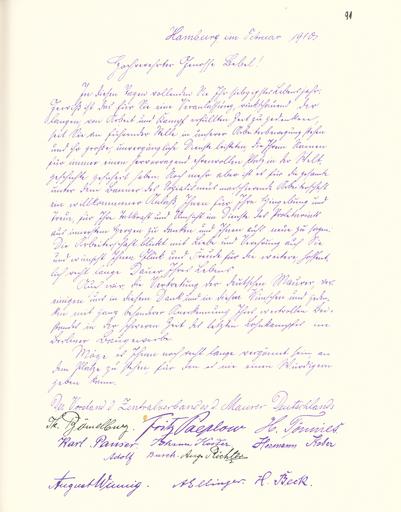 91
Hamburg im Februar 1910.
Hochverehrter Genosse Bebel!
In diesen Tagen vollenden Sie Ihr siebzigstes Lebensjahr.
Gewiß ist das für Sie eine Veranlassung, rückschauend der
langen, von Arbeit und Kampf erfüllten Zeit zu gedenken,
seit Sie an führender Stelle in unserer Arbeiterbewegung stehen
und ihr große, unvergängliche Dienste leisteten, die Ihrem Namen
für immer einen hervorragend ehrenvollen Platz in der Welt-
geschichte gesichert haben. Noch mehr aber ist es für die gesamte
unter dem Banner des Sozialismus marschierende Arbeiterschaft
ein willkommener Anlaß, Ihnen für Ihre Hingebung und
Treue, für Ihre Tatkraft und Umsicht im Dienste des Proletariats
aus innerstem Herzen zu danken und Ihnen
Die Arbeiterschaft blickt mit Liebe und Verehrung auf Sie
und wünscht Ihnen Glück und Freude für die weitere, hoffent-
lich recht lange Dauer Ihres Lebens.
Auch wir, die Vertretung der deutschen Maurer, ver-
einigen uns in diesem Dank und in diesen Wünschen und geden-
ken mit ganz besonderer Anerkennung Ihres wertvollen Bei-
standes in der schweren Zeit des letzten Lohnkampfes im
Berliner Baugewerbe.
Möge es Ihnen noch recht lange vergönnt sein, an
dem Platze zu stehen, für den es nie einen Würdigeren
geben kann.
Der Vorstand d. Zentralverbandes d. Maurer Deutschlands
Th. Bömelburg. Fritz Paeplow H.
Karl Panser Hermann
Adolf Aug. Richter
August Winnig. A. Ellinger. H. Beck.